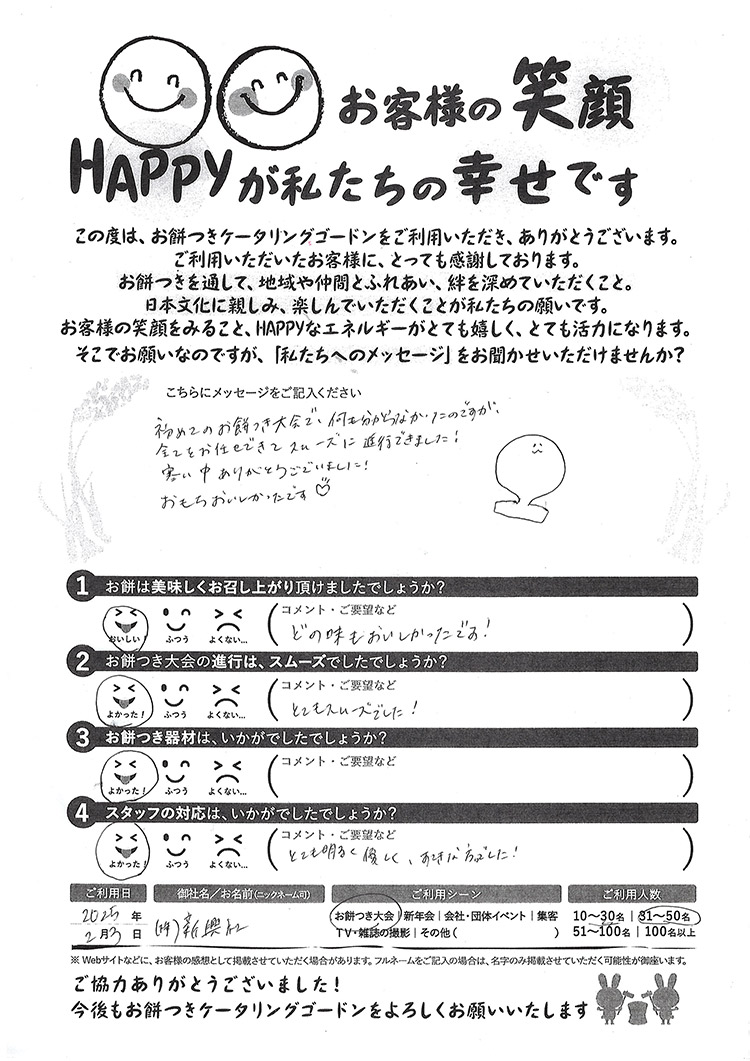 お客様の笑顔
HAPPYが私たちの幸せです
この度は、お餅つきケータリングゴードンをご利用いただき、ありがとうございます。
ご利用いただいたお客様に、とっても感謝しております。
お餅つきを通して、地域や仲間とふれあい、絆を深めていただくこと。
日本文化に親しみ、楽しんでいただくことが私たちの願いです。
お客様の笑顔をみること、HAPPYなエネルギーがとても嬉しく、とても活力になります。
そこでお願いなのですが、「私たちへのメッセージ」をお聞かせいただけませんか？
こちらにメッセージをご記入ください
初めてのお餅つき大会で、何も分からなかったのですが、
全てをお任せできてスムーズに進行できました！
寒い中ありがとうございました！
おもちおいしかったです♡
1 お餅は美味しくお召し上がり頂けましたでしょうか？
コメント・ご要望など
おいしい！ ふつう よくない… どの味もおいしかったです！
2 お餅つき大会の進行は、スムーズでしたでしょうか？
コメント・ご要望など
よかった！ ふつう よくない… とてもスムーズでした！
3 お餅つき器材は、いかがでしたでしょうか？
コメント・ご要望など
よかった！ ふつう よくない…
4 スタッフの対応は、いかがでしたでしょうか？
コメント・ご要望など
よかった！ ふつう よくない… とても明るく優しく、すてきな方でした！
ご利用日 御社名／お名前(ニックネーム可) ご利用シーン ご利用人数
2025年 (株)新興社 お餅つき大会｜新年会｜会社・団体イベント｜集客 10〜30名｜31〜50名
2月3日 TV・雑誌の撮影｜その他( ) 51〜100名｜100名以上
※ Webサイトなどに、お客様の感想として掲載させていただく場合があります。フルネームをご記入の場合は、名字のみ掲載させていただく可能性が御座います。
ご協力ありがとうございました！
今後もお餅つきケータリングゴードンをよろしくお願いいたします